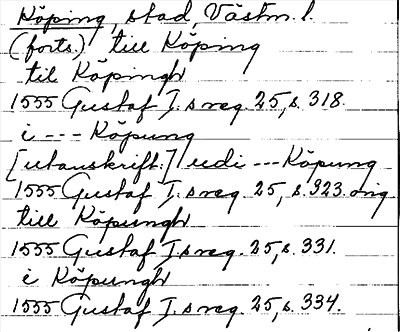 Köping, stad, Västm. l.
(forts.) till Köping
til Köpingh
1555 Gustaf I:s reg. 25, s. 318.
i --- Köpung
[utanskrift:] udi --- Köpung
1555 Gustaf I:s reg. 25, s. 323 orig.
till Köpungh
1555 Gustaf I:s reg. 25, s. 331.
i Köpungh
1555 Gustaf I:s reg. 25, s. 334.